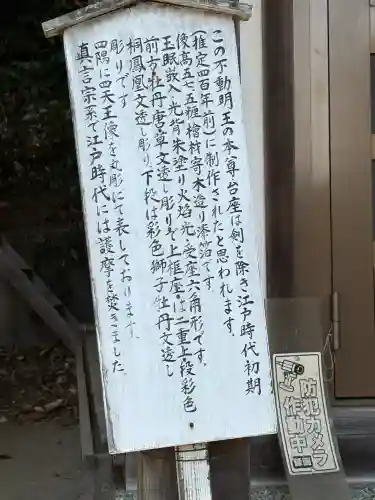 この不動明王の本尊台座は剣を除き江戸時代初期
(推定四百年前)に制作されたと思われます。
像高五七五糎檜材寄木造り漆箔です。
玉眼嵌入光背朱塗り火焔光受座六角形です。
前方牡丹唐草文透し彫りで上框座は二重上段彩色
桐鳳凰文透し彫り、下段は彩色獅子牡丹文透し
彫りです。
四隅に四天王像を丸彫にて表しております。
真言宗系で江戸時代には護摩を焚きました
防犯カメラ
作動中